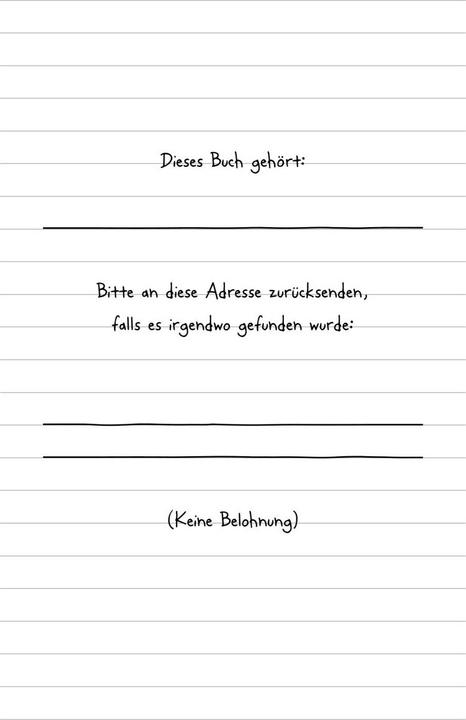 Dieses Buch gehört:
Bitte an diese Adresse zurücksenden,
falls es irgendwo gefunden wurde:
(Keine Belohnung)